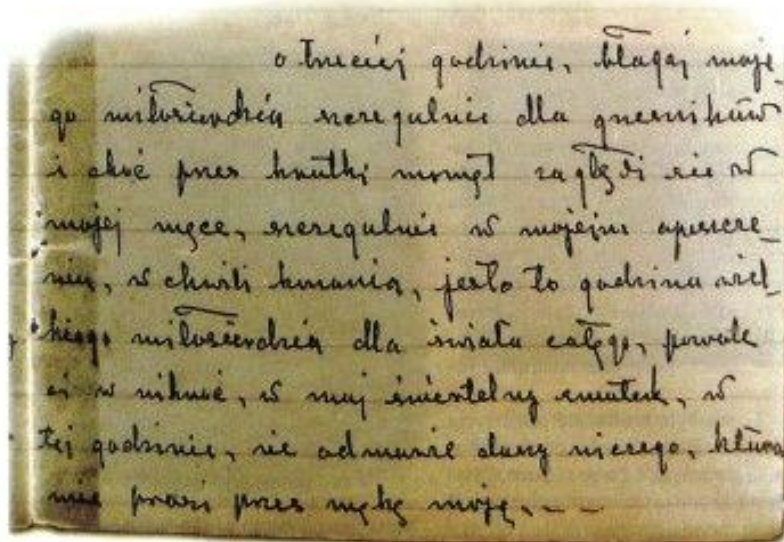 o trzeciej godzinie, błagaj moje-
go miłosierdzia szczegulnie dla grzeszników
i choć przes krutki momęt zagłębi się w
mojej męce, szczegulnie w mojem opuszcze-
niu, w chwili konania, jesto to godzina wiel-
kiego miłosierdzia dla świata całego, powole
ci w niknoć, w muj śmiertelny smutek, w
tej godzinie, nie odmuwie duszy niczego, ktura
mie prosi przes mękę moję. - -